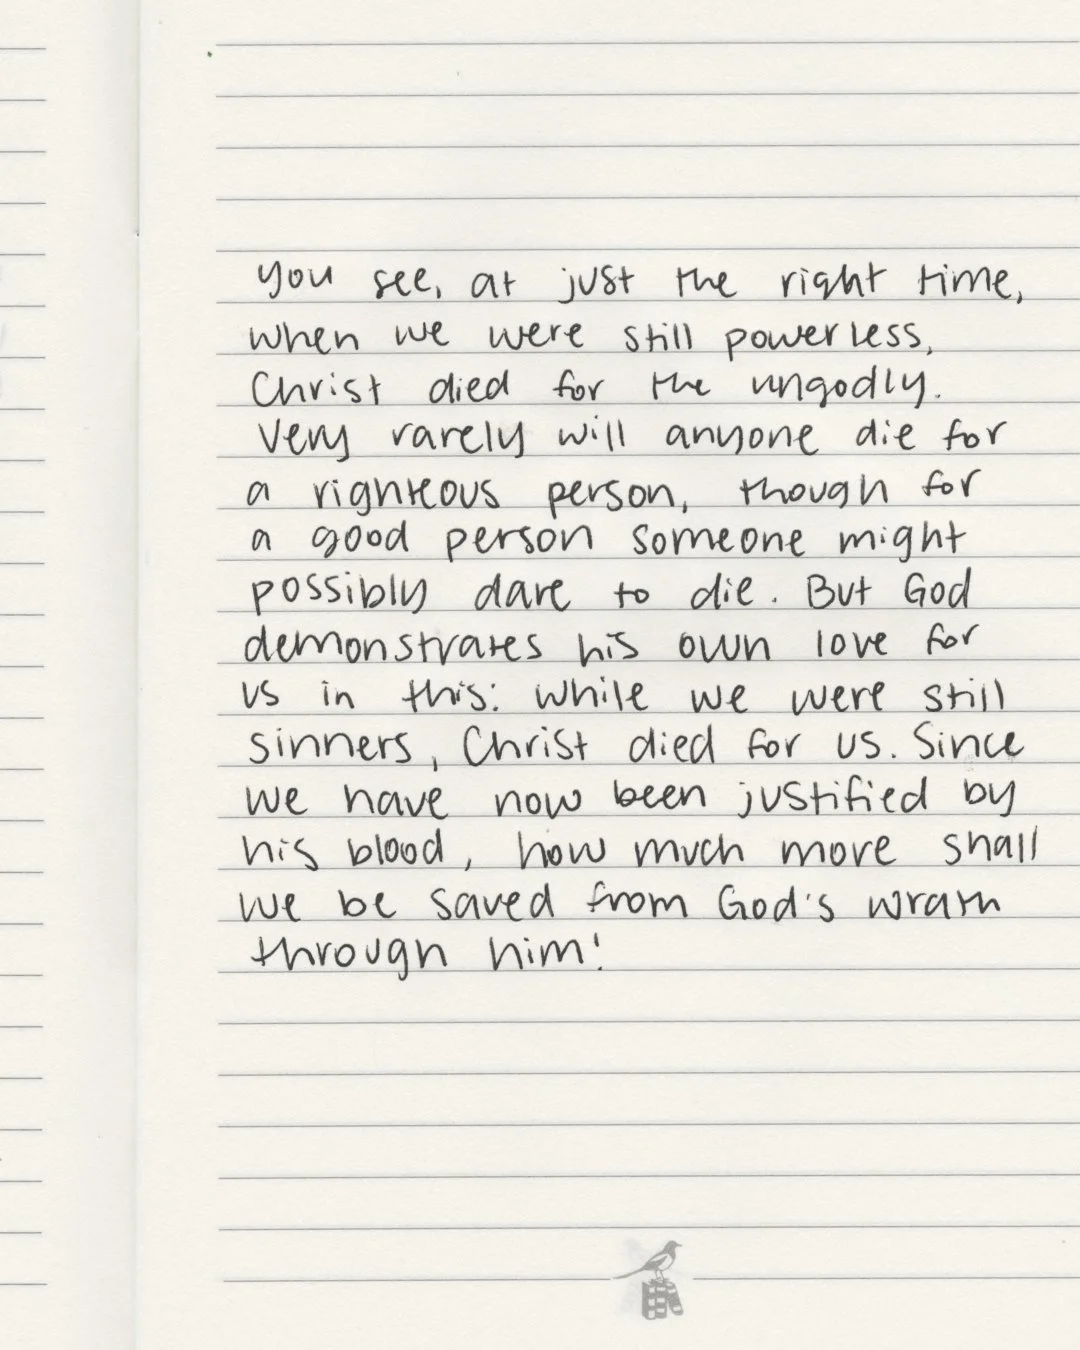 you see, at just the right time,
when we were still powerless,
Christ died for the ungodly.
Very rarely will anyone die for
a righteous person, though for
a good person someone might
possibly dare to die. But God
demonstrates his own love for
us in this: while we were still
sinners, Christ died for us. Since
we have now been justified by
his blood, how much more shall
we be saved from God's wrath
through him!